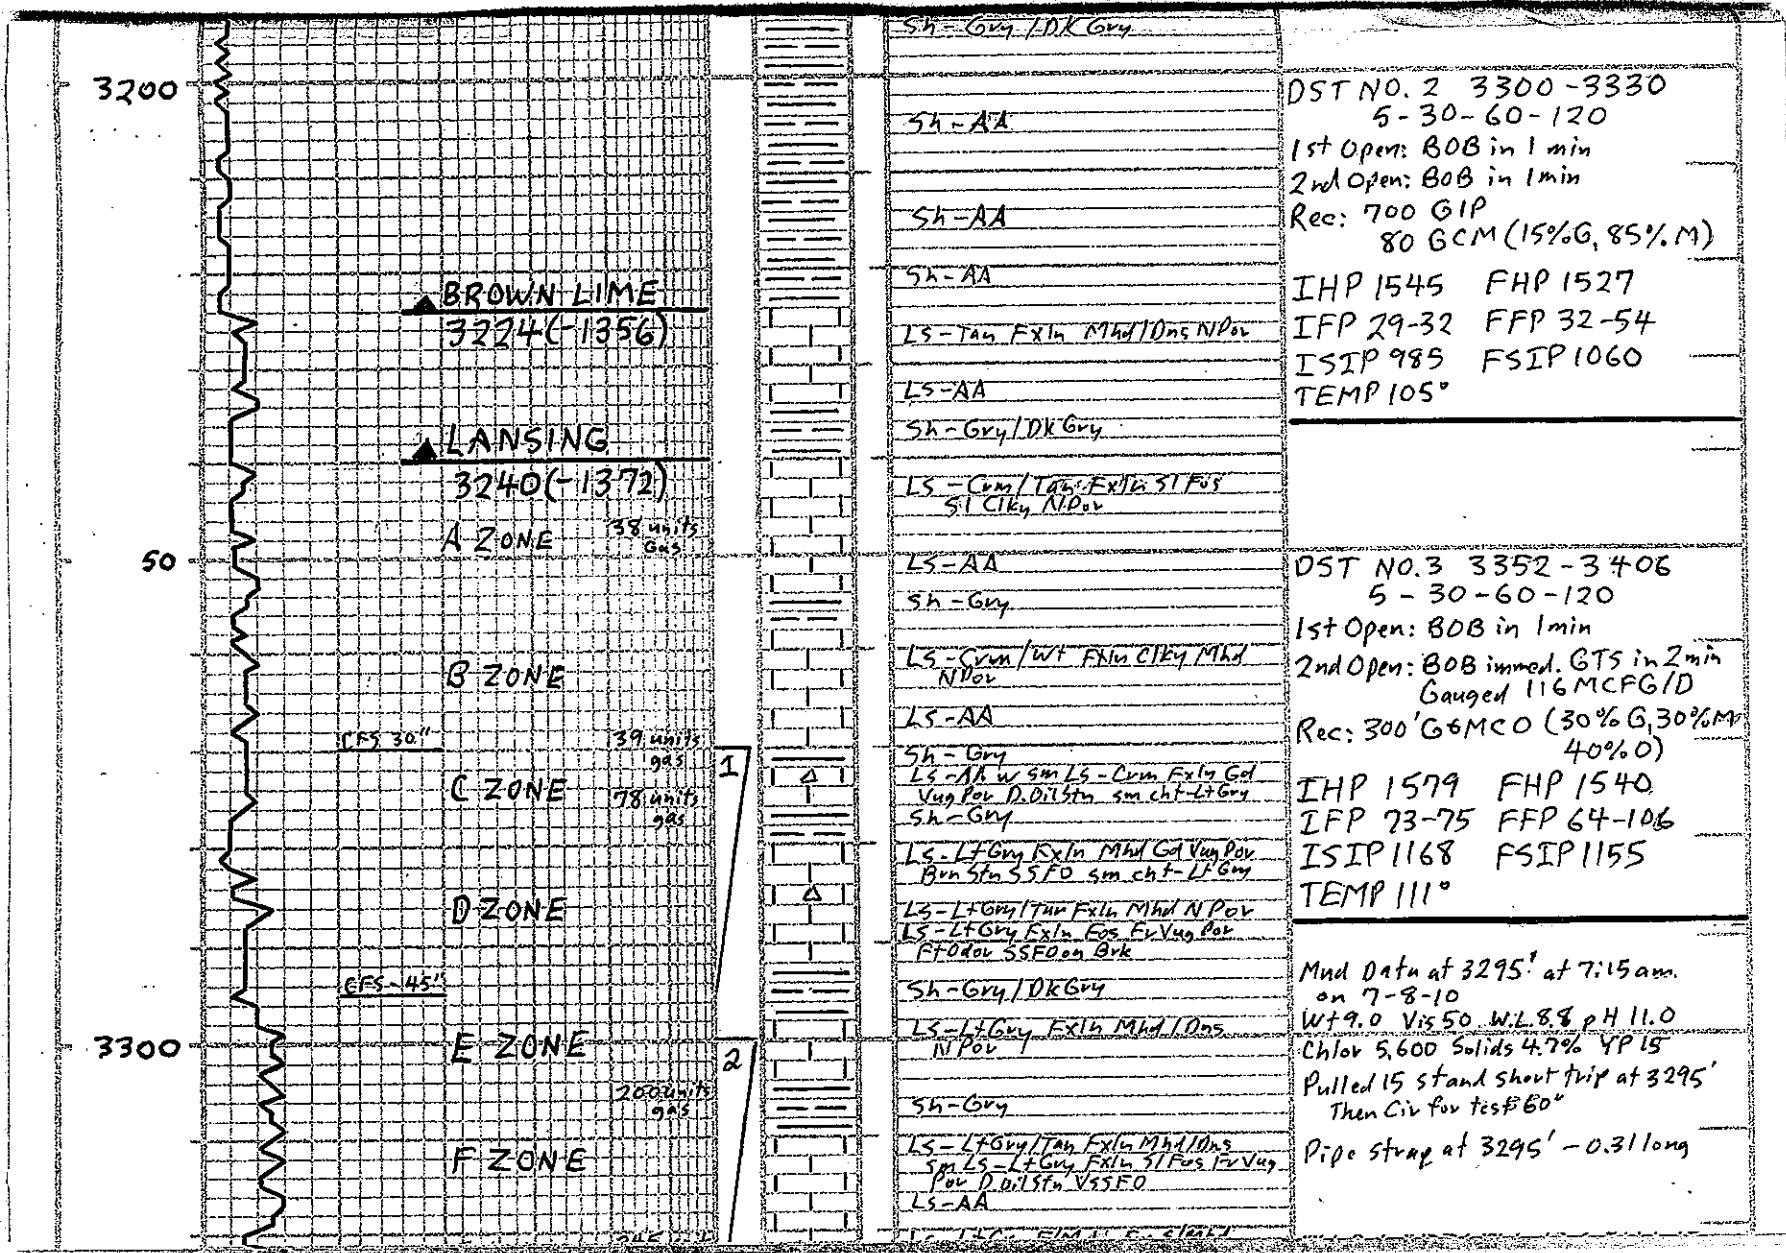 3200
50
3300
BROWN LIME
3224(-1356)
LANSING
3240(-1372)
A ZONE
38 units
Gas
B ZONE
CFS 30"
39 units
gas
C ZONE
78 units
gas
D ZONE
CFS-45"
E ZONE
200 units
gas
F ZONE
1
2
Sh-Gry/DK Gry
Sh-AA
Sh-AA
Sh-AA
LS-Tan Fxln Mhd/Dns NPor
LS-AA
Sh-Gry/DK Gry
LS-Crm/Tan Fxln Sl Fos
Sl Clky N.Por
LS-AA
Sh-Gry
LS-Crm/Wt Fxln Clky Mhd
NPor
LS-AA
Sh-Gry
LS-AA w sm LS-Crm Fxln Gd
Vug Por D.OilStn sm cht-LtGry
Sh-Gry
LS-LtGry Fxln Mhd Gd Vug Por
Brn Stn SSFO sm cht-LtGry
LS-LtGry/Tan Fxln Mhd N Por
LS-LtGry Fxln Fos Fr Vug Por
Ft Odor SSFO on Brk
Sh-Gry/DkGry
LS-LtGry Fxln Mhd/Dns
N Por
Sh-Gry
LS-LtGry/Tan Fxln Mhd/Dns
sm LS-LtGry Fxln Sl Fos Fr Vug
Por D.OilStn VSSFO
LS-AA
DST NO. 2 3300-3330
5-30-60-120
1st Open: BOB in 1 min
2nd Open: BOB in 1min
Rec: 700 GIP
80 GCM (15%G, 85% M)
IHP 1545 FHP 1527
IFP 29-32 FFP 32-54
ISIP 985 FSIP 1060
TEMP 105°
DST NO.3 3352-3406
5-30-60-120
1st Open: BOB in 1min
2nd Open: BOB immed. GTS in 2min
Gauged 116 MCFG/D
Rec: 300'G&MCO (30% G, 30%M
40% O)
IHP 1579 FHP 1540
IFP 73-75 FFP 64-106
ISIP 1168 FSIP 1155
TEMP 111°
Mud Data at 3295' at 7:15 am.
on 7-8-10
Wt 9.0 Vis 50 W.L. 8.8 pH 11.0
Chlor 5,600 Solids 4.7% YP 15
Pulled 15 stand short trip at 3295'
Then Cir for test 60"
Pipe Strap at 3295' - 0.31 long